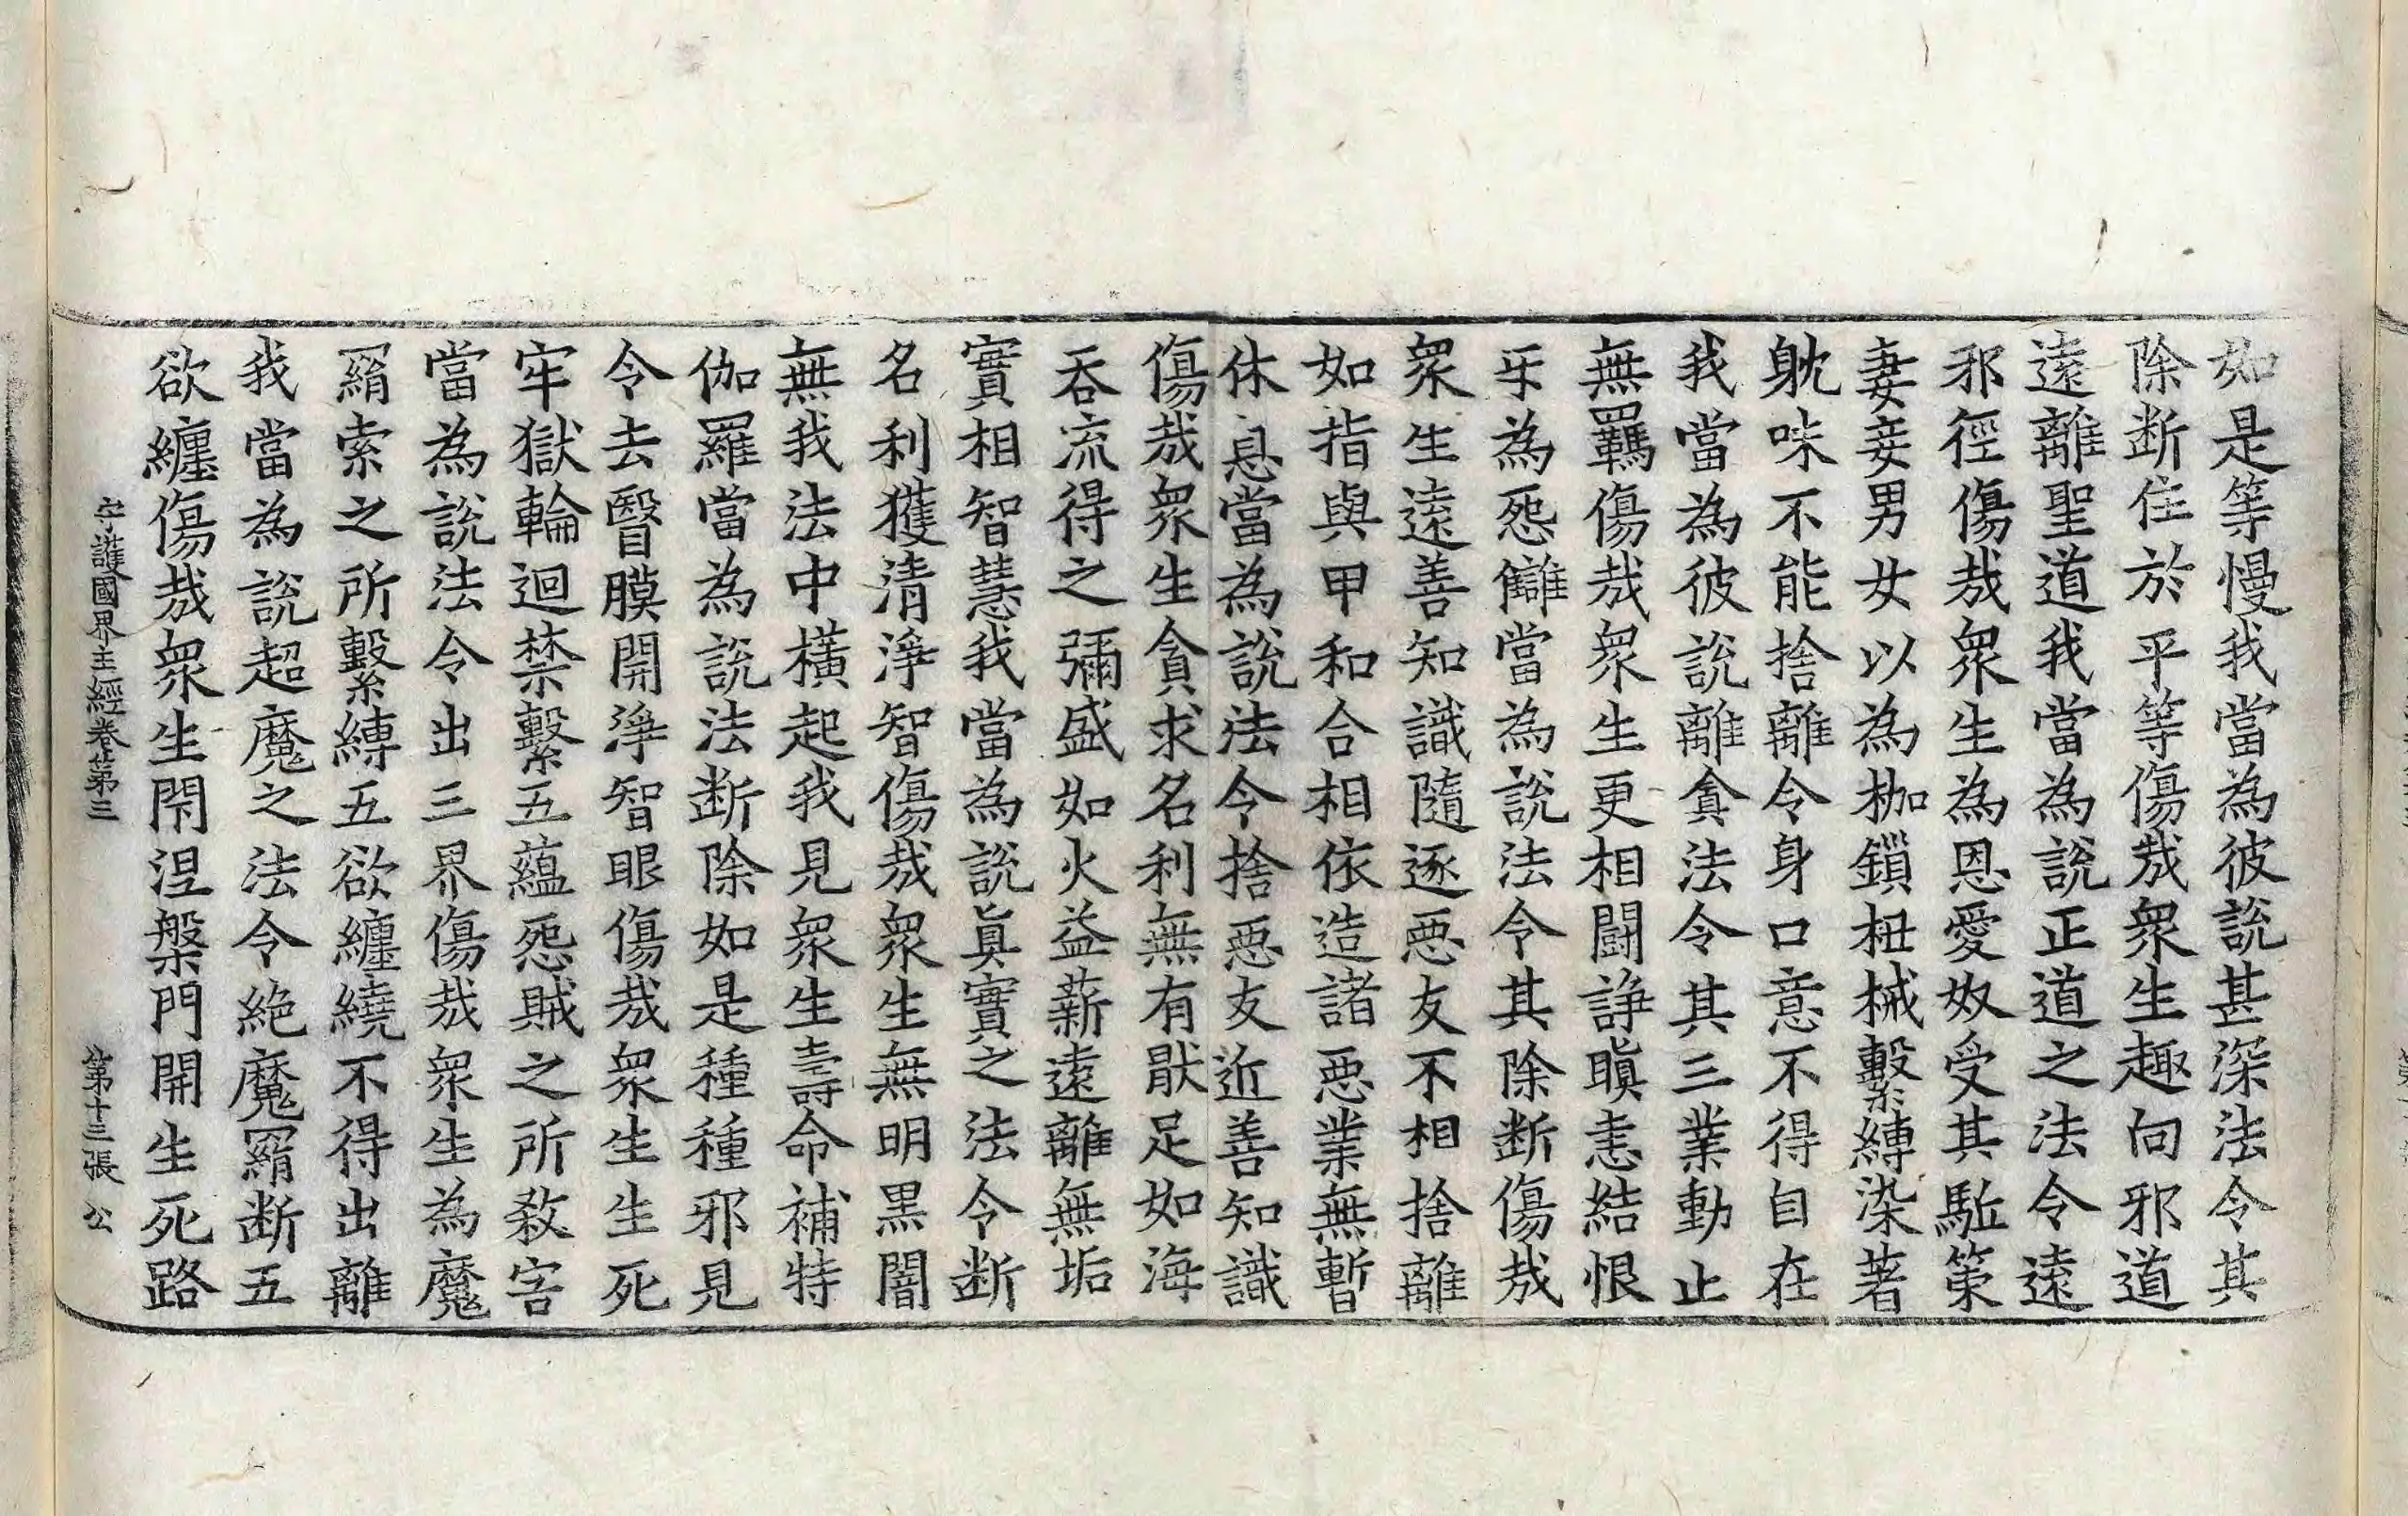 如是等慢我當為彼說甚深法令其
除断住於平等傷㢤衆生趣向邪道
遠離聖道我當為說正道之法令遠
邪徑傷㢤衆生為恩愛奴受其駈策
妻妾男女以為枷鎖杻械繫縛染著
躭味不能捨離令身口意不得自在
我當為彼說離貪法令其三業動止
無羈傷㢤衆生更相鬪諍瞋恚結恨
㸦為怨讎當為說法令其除断傷㢤
衆生遠善知識隨逐惡友不相捨離
如指與甲和合相依造諸惡業無暫
休息當為說法令捨惡友近善知識
傷㢤衆生貪求名利無有猒足如海
吞流得之彌盛如火益薪遠離無垢
實相智慧我當為說真實之法令断
名利獲清淨智傷㢤衆生無明黒闇
無我法中橫起我見衆生壽命補特
伽羅當為說法断除如是種種邪見
令去瞖膜開淨智眼傷㢤衆生生死
牢獄輪迴禁繫五蘊怨賊之所敎害
當為說法令出三界傷㢤衆生為魔
羂索之所繫縛五欲纏繞不得出離
我當為說超魔之法令絕魔羂断五
欲纏傷㢤衆生閇涅槃門開生死路
守護國界主經卷第三 第十三張 公